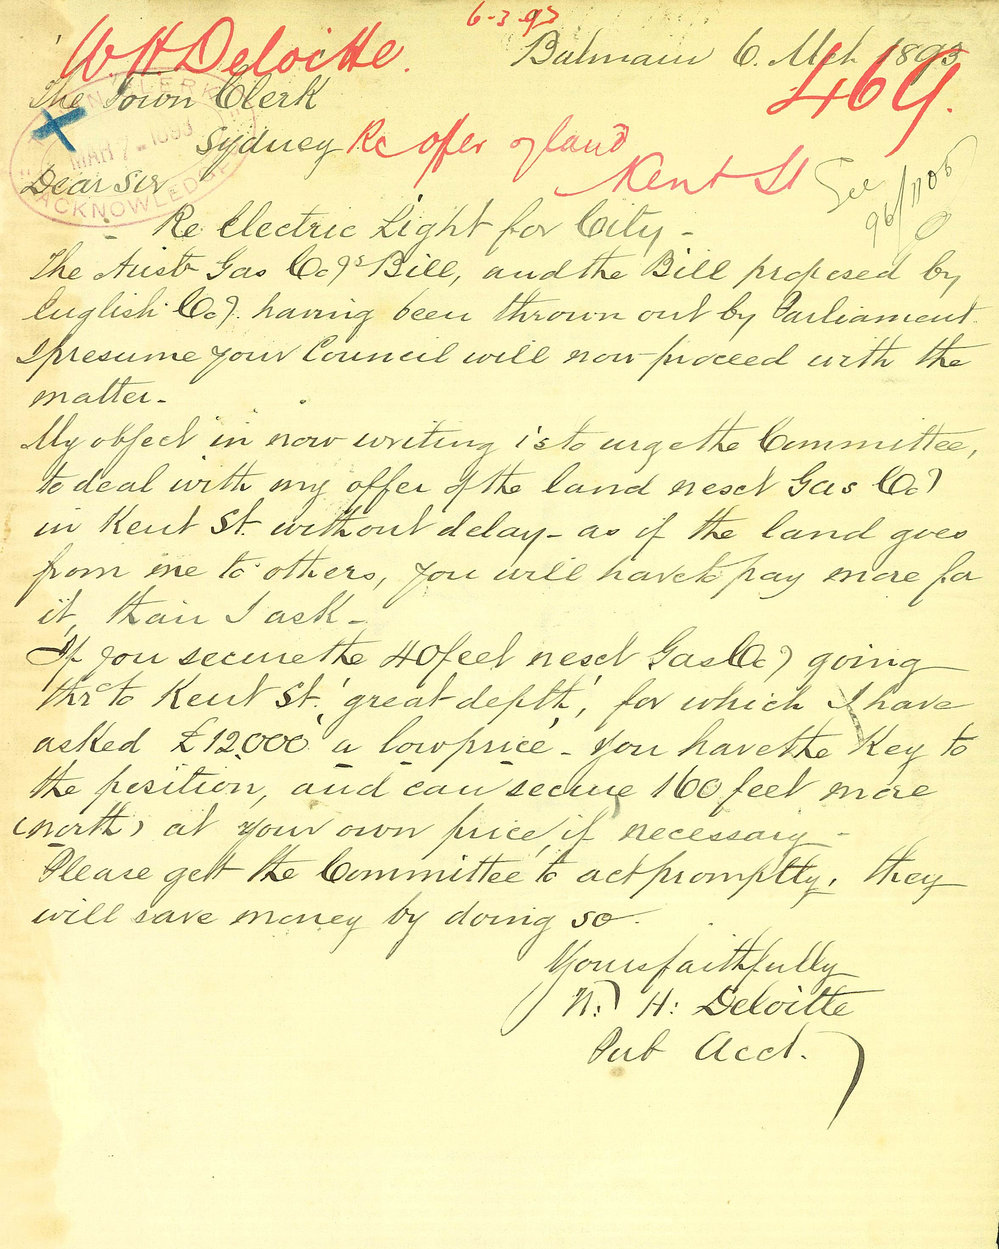 6-3.93
W H Deloitte.
Balmain 6. Mch 1893
469.
The Town Clerk
Sydney
Re offer of land
Kent St
See
96/1105
TOWN CLERK
MAR 7-1893
ACKNOWLEDGED
Dear Sir
- Re Electric Light for City -
The Austn Gas Coy's Bill, and the Bill proposed by
English Coy. having been thrown out by Parliament.
I presume your Council will now proceed with the
matter -
My object in now writing is to urge the Committee,
to deal with my offer of the land next Gas Coy
in Kent St. without delay - as if the land goes
from me to others, you will have to pay more for
it, than I ask -
If you secure the 40 feet next Gas Coy going
thro to Kent St. 'great depth', for which I have
asked £12000 'a low price' - you have the Key to
the position, and can secure 160 feet more
(north) at your own price, if necessary -
Please gett the Committee to act promptly, they
will save money by doing so.
Yours faithfully
W. H: Deloitte
Pub Acct.